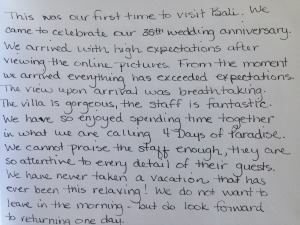 This was our first time to visit Bali. We
came to celebrate our 35th wedding anniversary.
We arrived with high expectations after
viewing the online pictures. From the moment
we arrived everything has exceeded expectations.
The view upon arrival was breathtaking.
The villa is gorgeous, the staff is fantastic.
We have so enjoyed spending time together
in what we are calling 4 Days of Paradise.
We cannot praise the staff enough, they are
so attentive to every detail of their guests.
We have never taken a vacation that has
ever been this relaxing! We do not want to
leave in the morning - but do look forward
to returning one day.